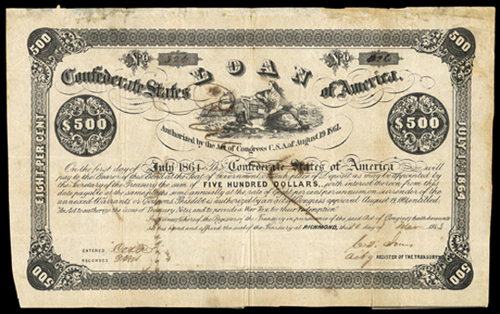 500
500
No 526
No 526
Confederate States LOAN of America,
Authorized by the Act of Congress C.S.A of August 19 1861.
$500
$500
EIGHT PER CENT
JULY 1 1864
On the first day of July 1864 The Confederate States of America will
pay to the Bearer of this Bond, at the Seat of Government, or at such place of deposit as may be appointed by
the Secretary of the Treasury the sum of FIVE HUNDRED DOLLARS, with interest thereon from this
date, payable at the same place, semi-annually at the rate of eight per cent per annum on surrender of the
annexed Warrants or Coupons. This debt is authorized by an act of Congress approved August 19, 1861, entitled
"An Act to authorize the issue of Treasury Notes and to provide a War Tax for their redemption."
the Register of the Treasury in pursuance of the said Act of Congress hath hereunto
set his hand and affixed the seal of the Treasury at RICHMOND, this day of 186
ENTERED
RECORDED
REGISTER OF THE TREASURY
500
500